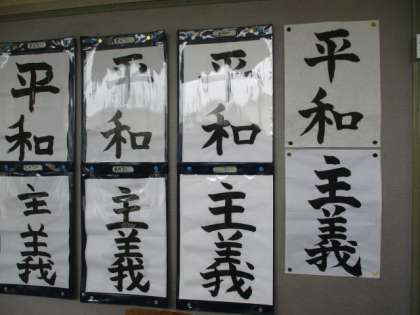 平和主義
平和主義
平和主義
平和主義